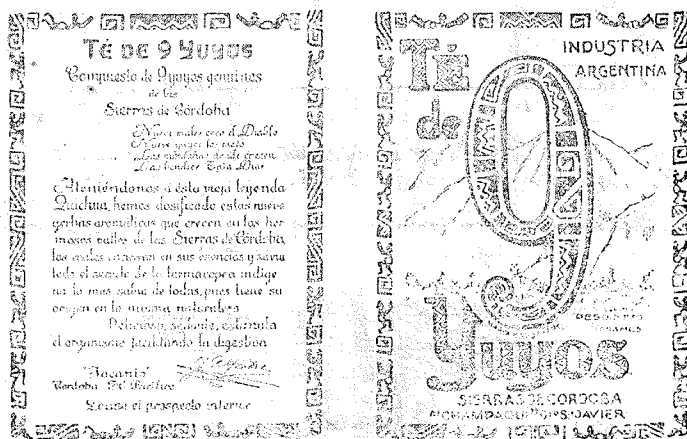 TÉ DE 9 YUYOS
Compuesto de 9 yuyos genuinos
de las
Sierras de Córdoba
Nueve males creó el Diablo
Nueve yuyos los
Las montañas donde crecen
Las bendice Tata Dios
Ateniéndonos a ésta vieja leyenda
Quichua, hemos dosificado estas nueve
yerbas aromáticas que crecen en los her
mosos valles de las Sierras de Córdoba,
las cuales encierran en sus esencias y savia
todo el secreto de la farmacopea indige
na la más sabia de todas, pues tiene su
origen en la misma naturaleza
Delicioso, sedante, estimula
el organismo facilitando la digestión
"Yacanto"
Córdoba F.C. Pacífico
Léase el prospecto interno
TÉ
de
9
Yuyos
INDUSTRIA
ARGENTINA
SIERRAS DE CORDOBA
CHAMPAQUI S. JAVIER